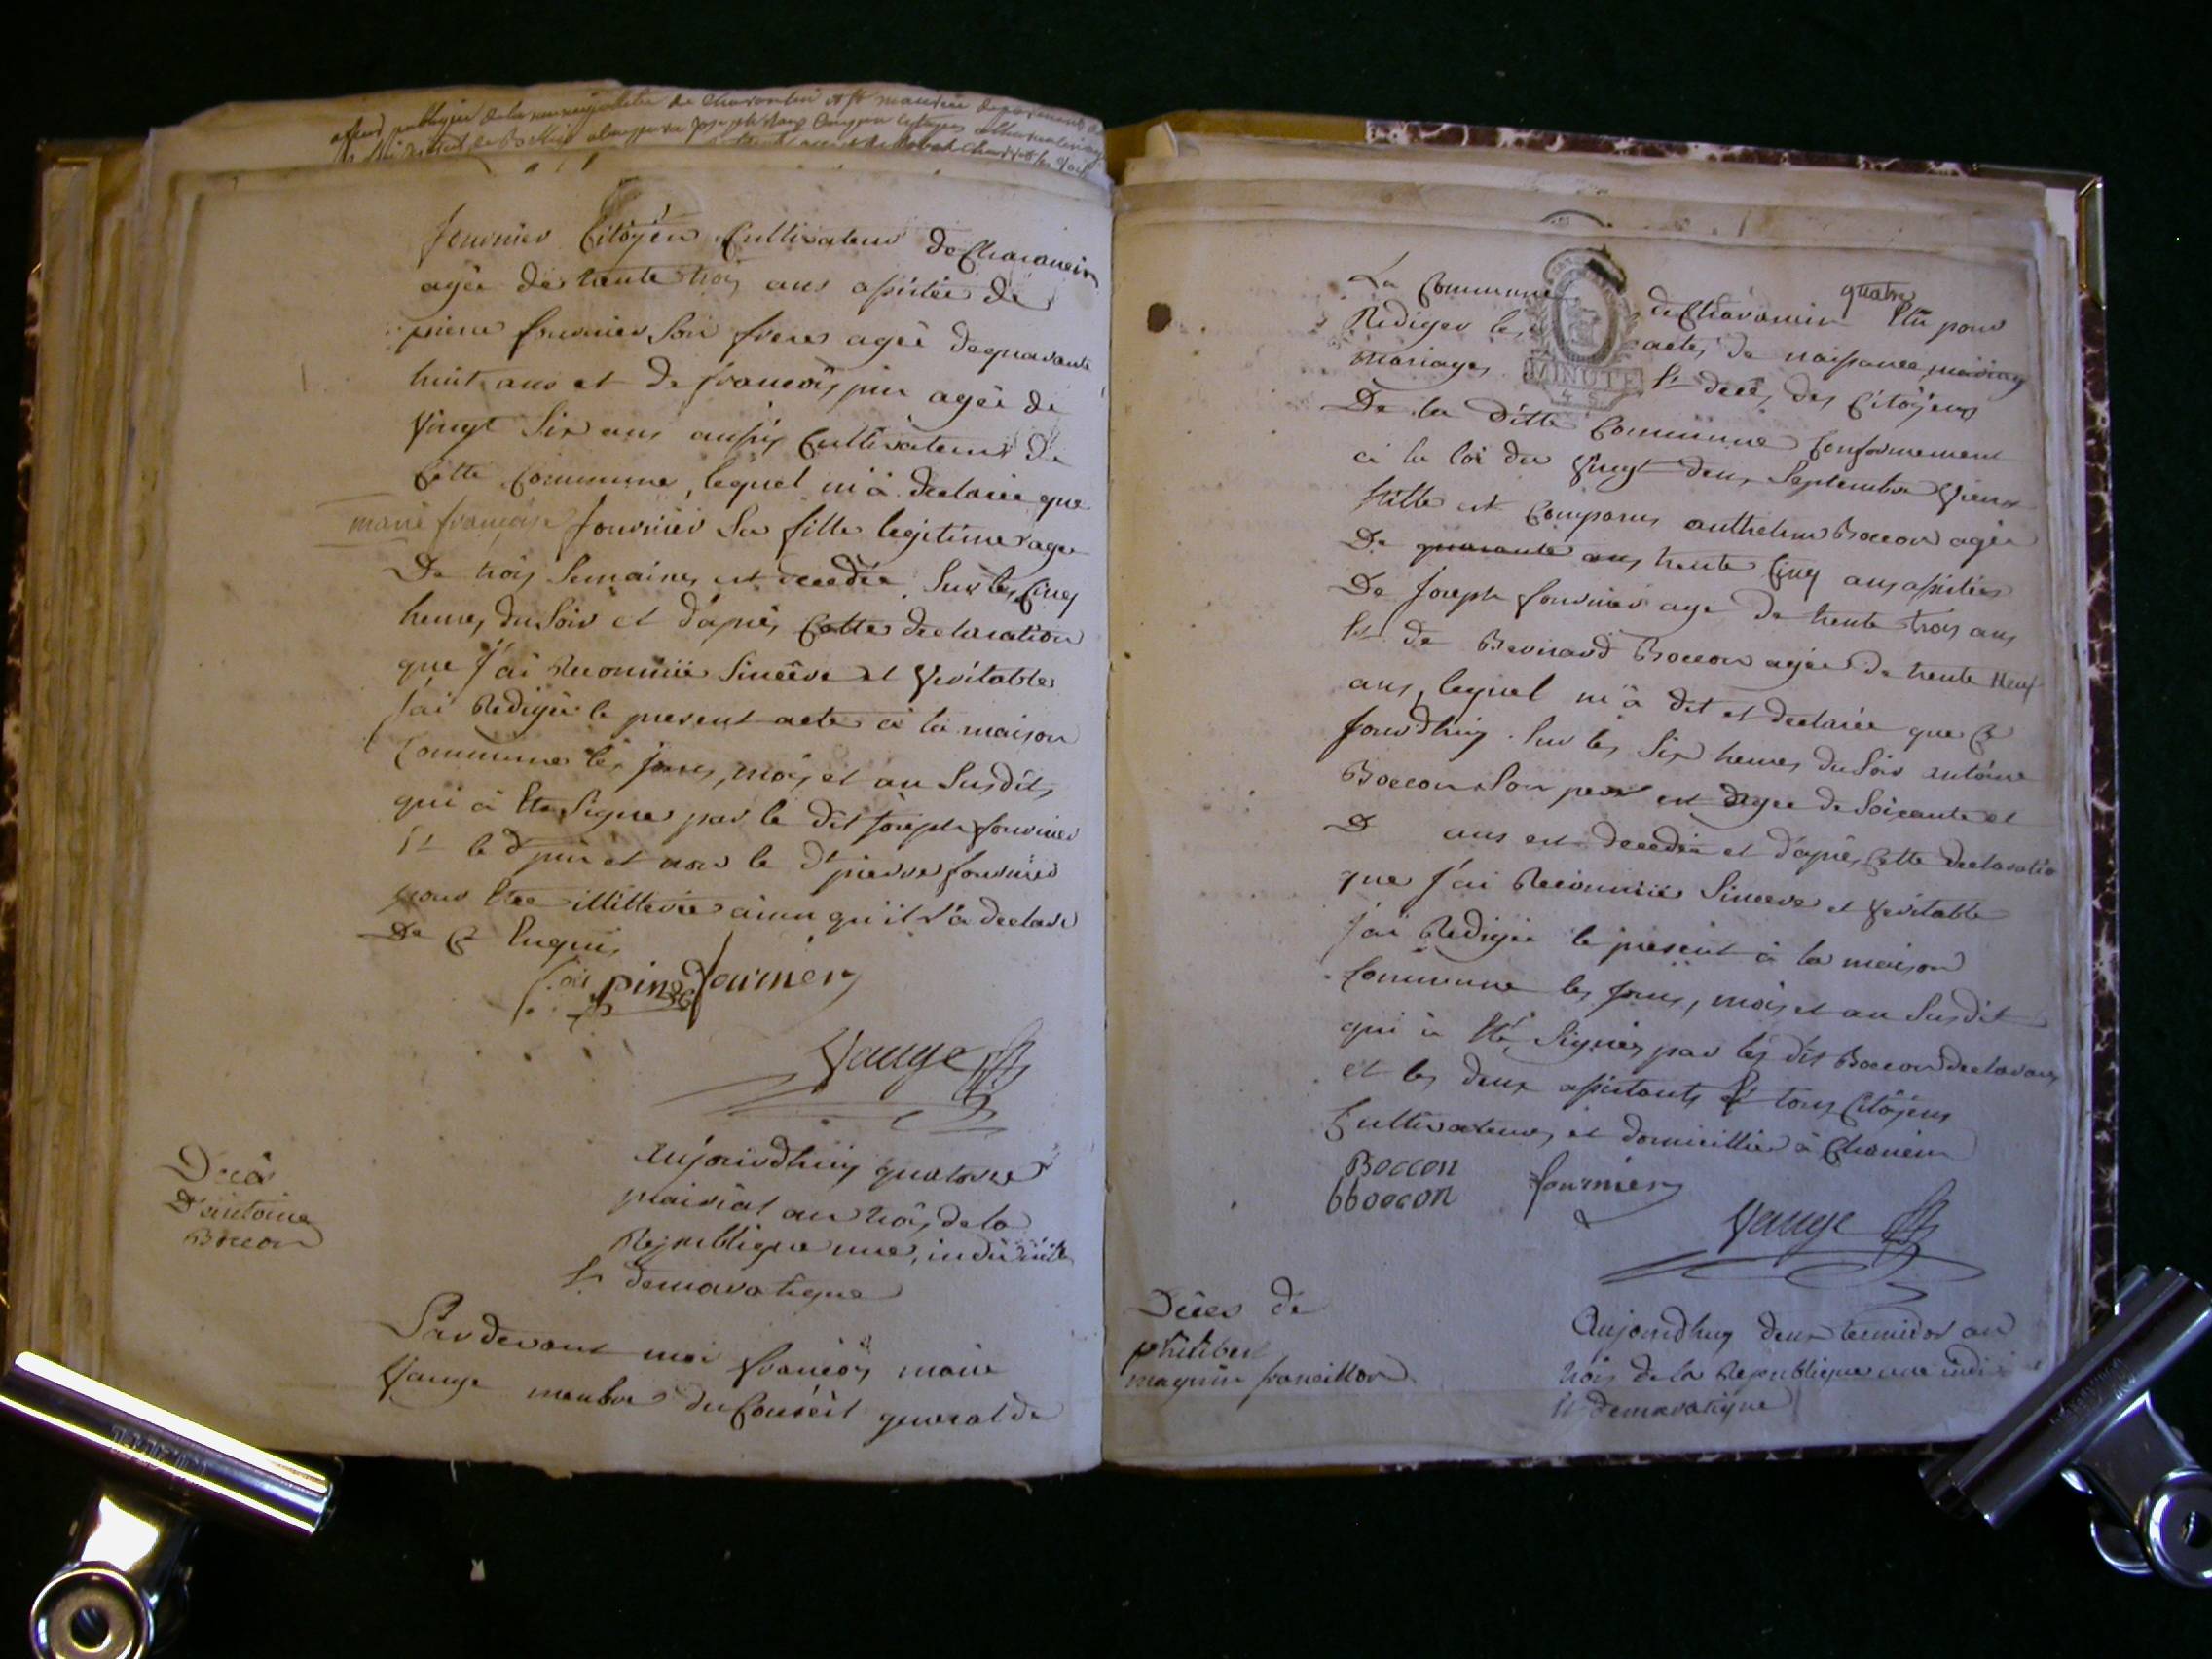 Fournier Citoyen Cultivateur de Charancin
agée de trente trois ans assistée de
pierre fournier son frere agée de quarante
huit ans et de françois pin agée de
vingt six ans aussy Cultivateurs de
Cette Commune, lequel m'a declarée que
marie françoise fournier sa fille legitime agée
De trois semaines est decedée sur les Cinq
heures du soir et d'aprés Cette declaration
que j'ai Reconnüe sincére et veritable
j'ai Redigée le present acte à la maison
Commune les jour, mois et an susdits
qui à été signe par le dit joseph fournier
et le dt pin et non le dt pierre fournier
pour être illitterée ainsi qu'il l'a declaré
De Ce Enquis
pin fournier
Vauge
Décés
D'antoine
Boccon
aujourdhuy quatorze
prairial an trois de la
Republique une, indivisible
et democratique
Pardevant moi françois marie
Vauge membre du Conseil general de
La Commune de Charancin élu pour
quatre
Rediger les actes de naissance, mariag
mariages et décès des Citoyens
De la ditte Commune Conformement
à la loi du vingt deux Septembre vieux
stille est Comparus anthelme Boccon agée
De quarante ans trente Cinq ans assistées
De joseph fournier age de trente trois ans
et de Bernard Boccon agée de trente neuf
ans, lequel m'à dit et declarée que Ce
jourdhuy sur les six heures du soir antoine
Boccon son pere agée de soixante et
D ans est decedée et d'aprés Cette declaratio
que j'ai Reconnüe sincere et veritable
j'ai Redigée le present à la maison
Commune les jour, mois et an susdit
qui à été signés par les dit Boccon declarans
et les deux assistants tous Citoyens
Cultivateurs et domicilliés à
Boccon fournier
bboccon
Vauge
Décès de
philibert
maquin francillon
Aujourdhuy deux termidor an
trois de la Republique une indi
et democratique
MINUTE